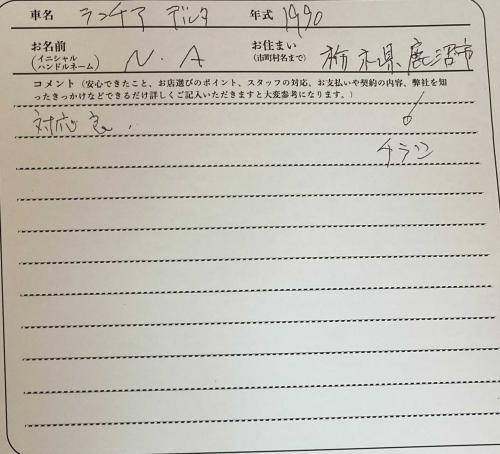 車名 ランチア デルタ 年式 1990
お名前 (イニシャル ハンドルネーム) N.A お住まい (市町村名まで) 栃木県鹿沼市
コメント（安心できたこと、お店選びのポイント、スタッフの対応、お支払いや契約の内容、弊社を知
ったきっかけなどできるだけ詳しくご記入いただきますと大変参考になります。）
対応 良.
チラシ